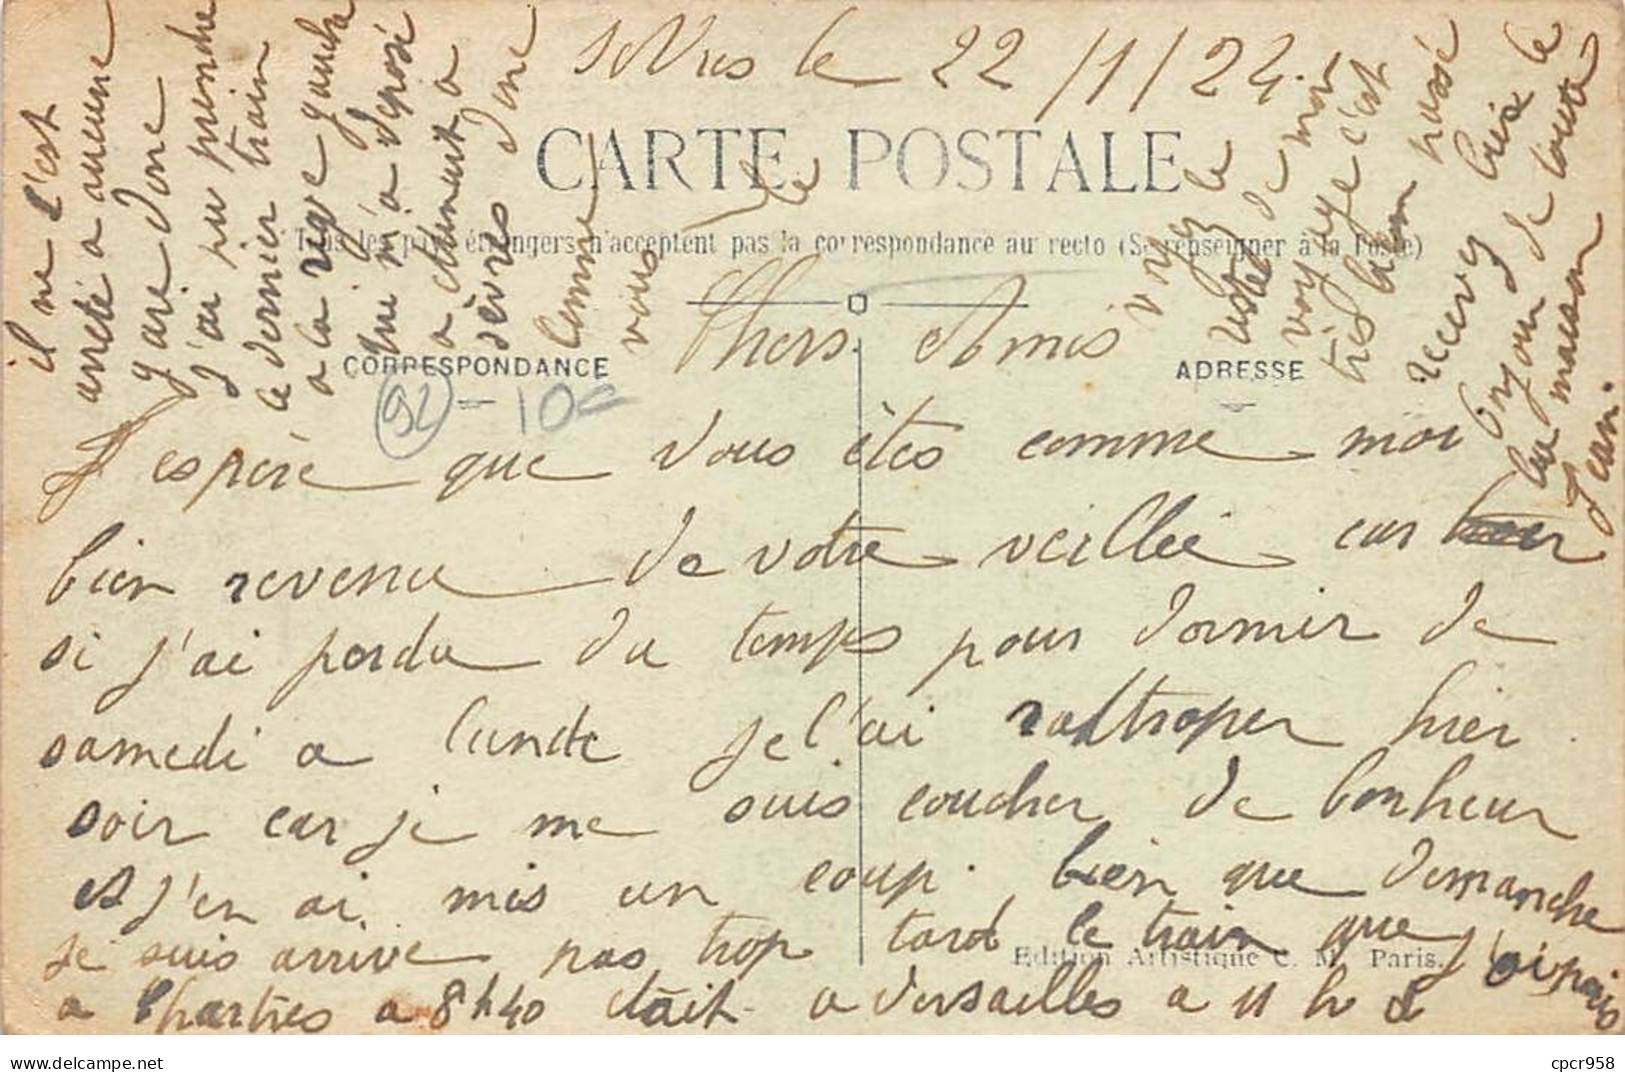 Sèvres le 22/1/24.
CARTE POSTALE
Tous les pays étrangers n'acceptent pas la correspondance au recto (Se renseigner à la Poste)
CORRESPONDANCE
ADRESSE
92
10
Chers Amis
J espére que vous êtes comme moi
bien revenu de votre veillée car
si j'ai perdu du temps pour dormir de
samedi a lundi je l'ai rattraper hier
soir car je me suis coucher de bonheur
et j'en ai mis un coup. bien que dimanche
je suis arrivé pas trop tard le train que j'ai pris
a Chartres a 8h40 était a Versailles a 11 h
il ne c'est
arreté a aucune
gare donc
j'ai pu prendre
le dernier train
a la rive gauche
qui m'a déposé
a
sèvres donc
comme
vous le
voyez le
reste de mon
voyage c'est
très bien passé
recevez le
bonjour de toute
la maison
Jean.
Edition Artistique C. M. Paris.
delcampe.net
cpcr958